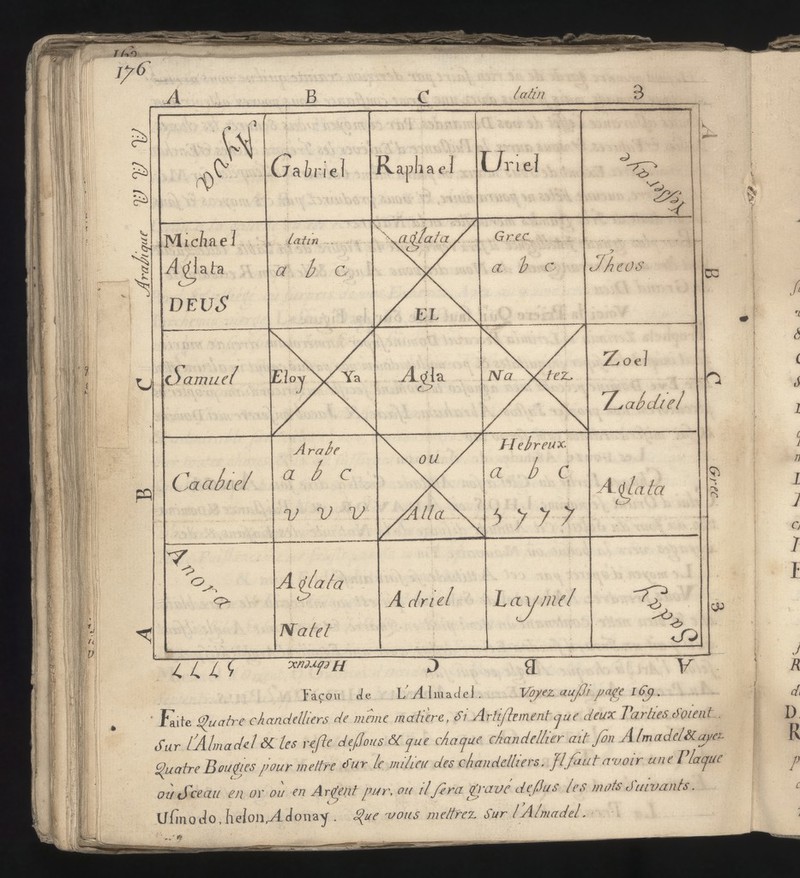 176
A B C latin 3
Arabique
Ayua Gabriel Raphael Uriel Yeseraye
Michael latin aglata Grec
Aglata a b c a b c Theos
DEUS EL
Samuel Eloy Ya Agla Na tez Zoel
Zabdiel
Arabe ou Hebreux
Caabiel a b c a b c Aglata
Alla
Anora Aglata Adriel Laymel Saday
Natet
A B C Grec 3
A B C
Hebreux C B A
Façou de L'Almadel. Voyez aussi page 169.
Faite Quatre chandelliers de même matière, si Artistement que deux Parties Soient
Sur l'Almadel & les reste dessous & que chaque chandellier ait son Almadel & ayez
Quatre Bougies pour mettre Sur le milieu des chandelliers. Il faut avoir une Plaque
ou Sceau en or ou en Argent pur. ou il sera gravé dessus les mots Suivants.
Usmodo, helon, Adonay. Que vous mettrez Sur l'Almadel.